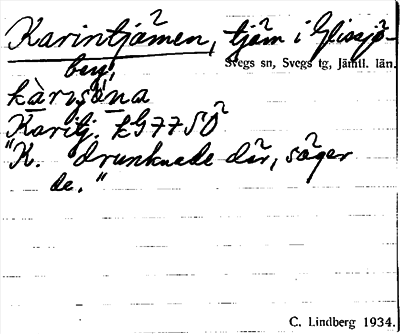 Karintjämen, tjäm i Glissjö-
berg,
Svegs sn, Svegs tg, Jämtl. län.
Karitj. EG77SÖ
"K. drunknade där, säger
de."
C. Lindberg 1934.